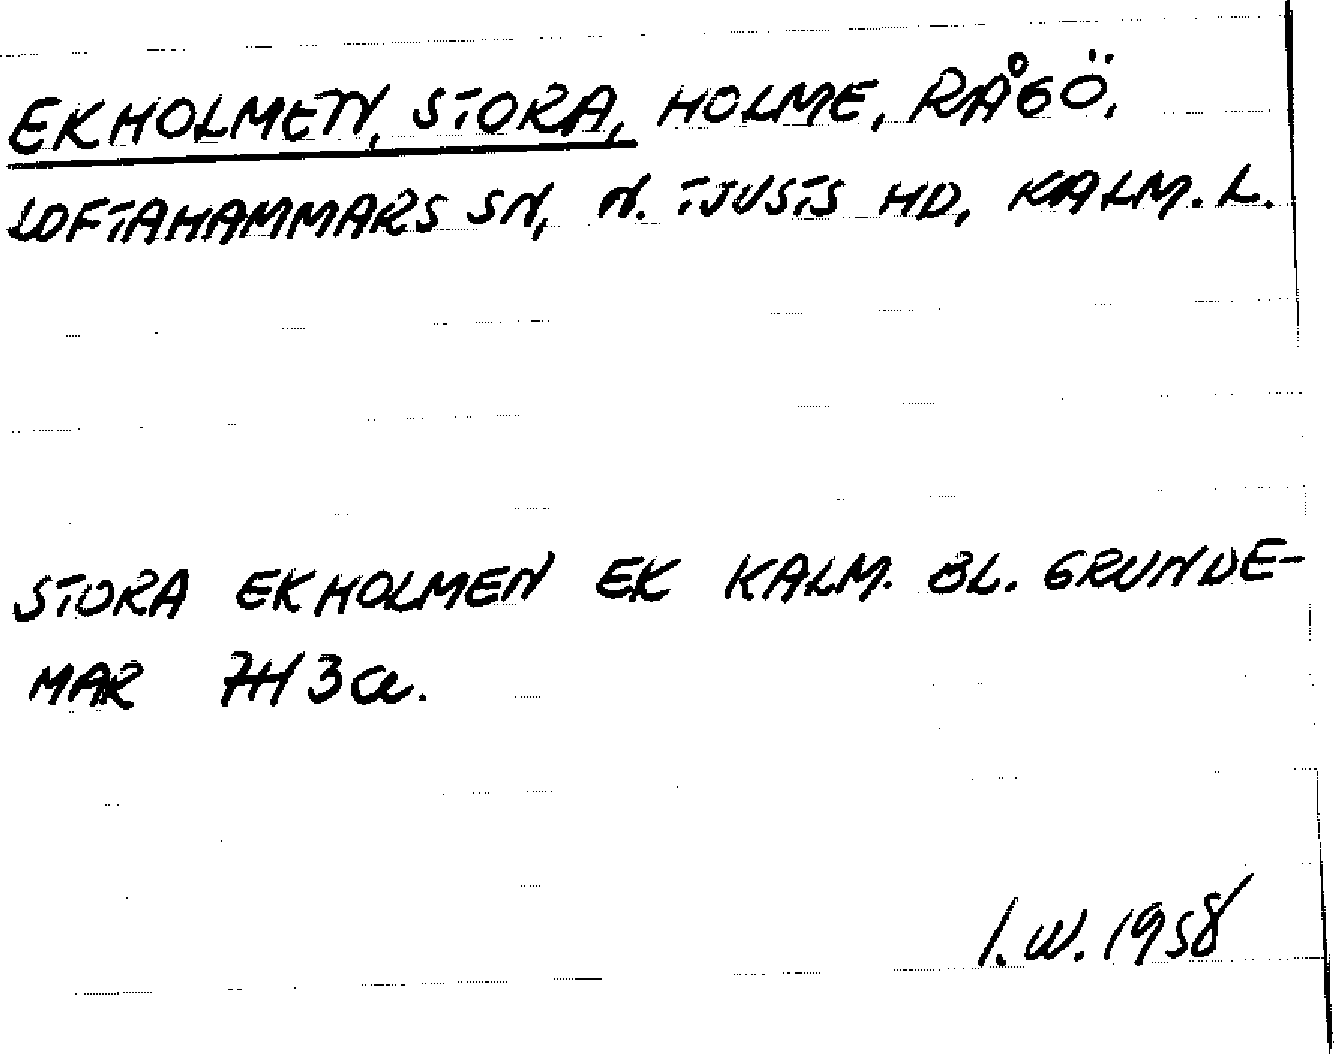 EKHOLMEN, STORA, HOLME, RÅGÖ,
LOFTAHAMMARS SN, N. TJUSTS HD, KALM. L.
STORA EKHOLMEN EK KALM. BL. GRUNDE-
MAR 7H 3a.
I.W. 1958